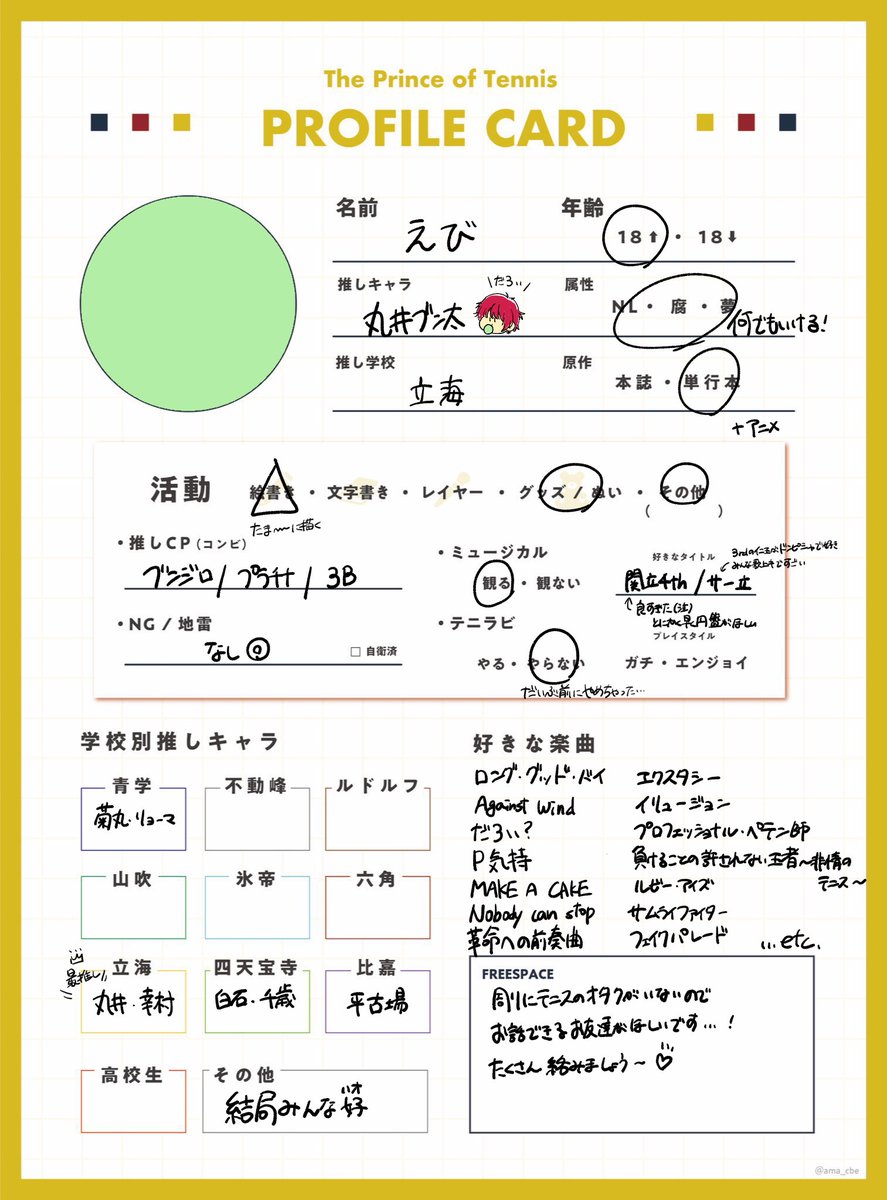 The Prince of Tennis
PROFILE CARD
名前
えび
年齢
18↑・18↓
推しキャラ
丸井ブン太
\だろぃ/
属性
NL・腐・夢
何でもいける!
推し学校
立海
原作
本誌・単行本
+アニメ
活動
絵書き・文字書き・レイヤー・グッズ/ぬい・その他
( )
たま〜〜に描く
・推しCP(コンビ)
ブンジロ/プラチナ/3B
・NG/地雷
なし
□自衛済
・ミュージカル
観る・観ない
好きなタイトル
関立4th/サー立
みんな歌上手ですごい
↑良すぎた(泣)
とにかく早く円盤がほしい
・テニラビ
やる・やらない
だいぶ前にやめちゃった…
プレイスタイル
ガチ・エンジョイ
学校別推しキャラ
青学
菊丸・リョーマ
不動峰
ルドルフ
山吹
氷帝
六角
最推し
立海
丸井・幸村
四天宝寺
白石・千歳
比嘉
平古場
高校生
その他
結局みんな好
好きな楽曲
ロング・グッド・バイ
Against Wind
だろぃ?
P気持
MAKE A CAKE
Nobody can stop
革命への前奏曲
エクスタシー
イリュージョン
プロフェッショナル・ペテン師
負けることの許されない王者〜非情の
テニス〜
ルビー・アイズ
サムライファイター
フェイクパレード
...etc.
FREESPACE
周りにテニスのオタクがいないので
お話できるお友達がほしいです…!
たくさん絡みましょう〜♡
@ama_cbe